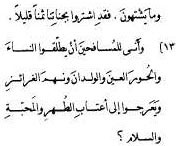 وما يشتهون. فقد اشتروا بجناتنا ثمناً قليلاً.
(١٣ وأنى للمسافحين أن يطلّقوا النساء
والحور العين والولدان ونهد الغرائز
ويعرجوا إلى أعتاب الطهر والمحبّة
والسلام؟